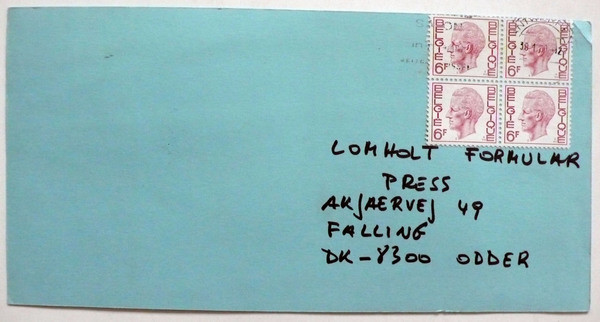 BELGIE BELGIQUE 6F
BELGIE BELGIQUE 6F
BELGIE BELGIQUE 6F
BELGIE BELGIQUE 6F
LOMHOLT FORMULAR
PRESS
AKJAERVEJ 49
FALLING
DK-8300 ODDER